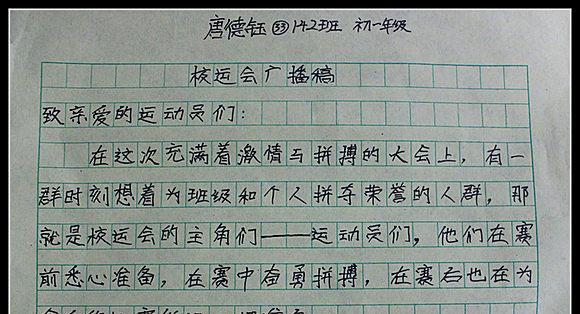 唐德钰 33 142班 初一年级
校运会广播稿
致亲爱的运动员们:
在这次充满着激情与拼搏的大会上,有一
群时刻想着为班级和个人拼夺荣誉的人群,那
就是校运会的主角们——运动员们,他们在赛
前悉心准备,在赛中奋勇拼搏,在赛后也在为